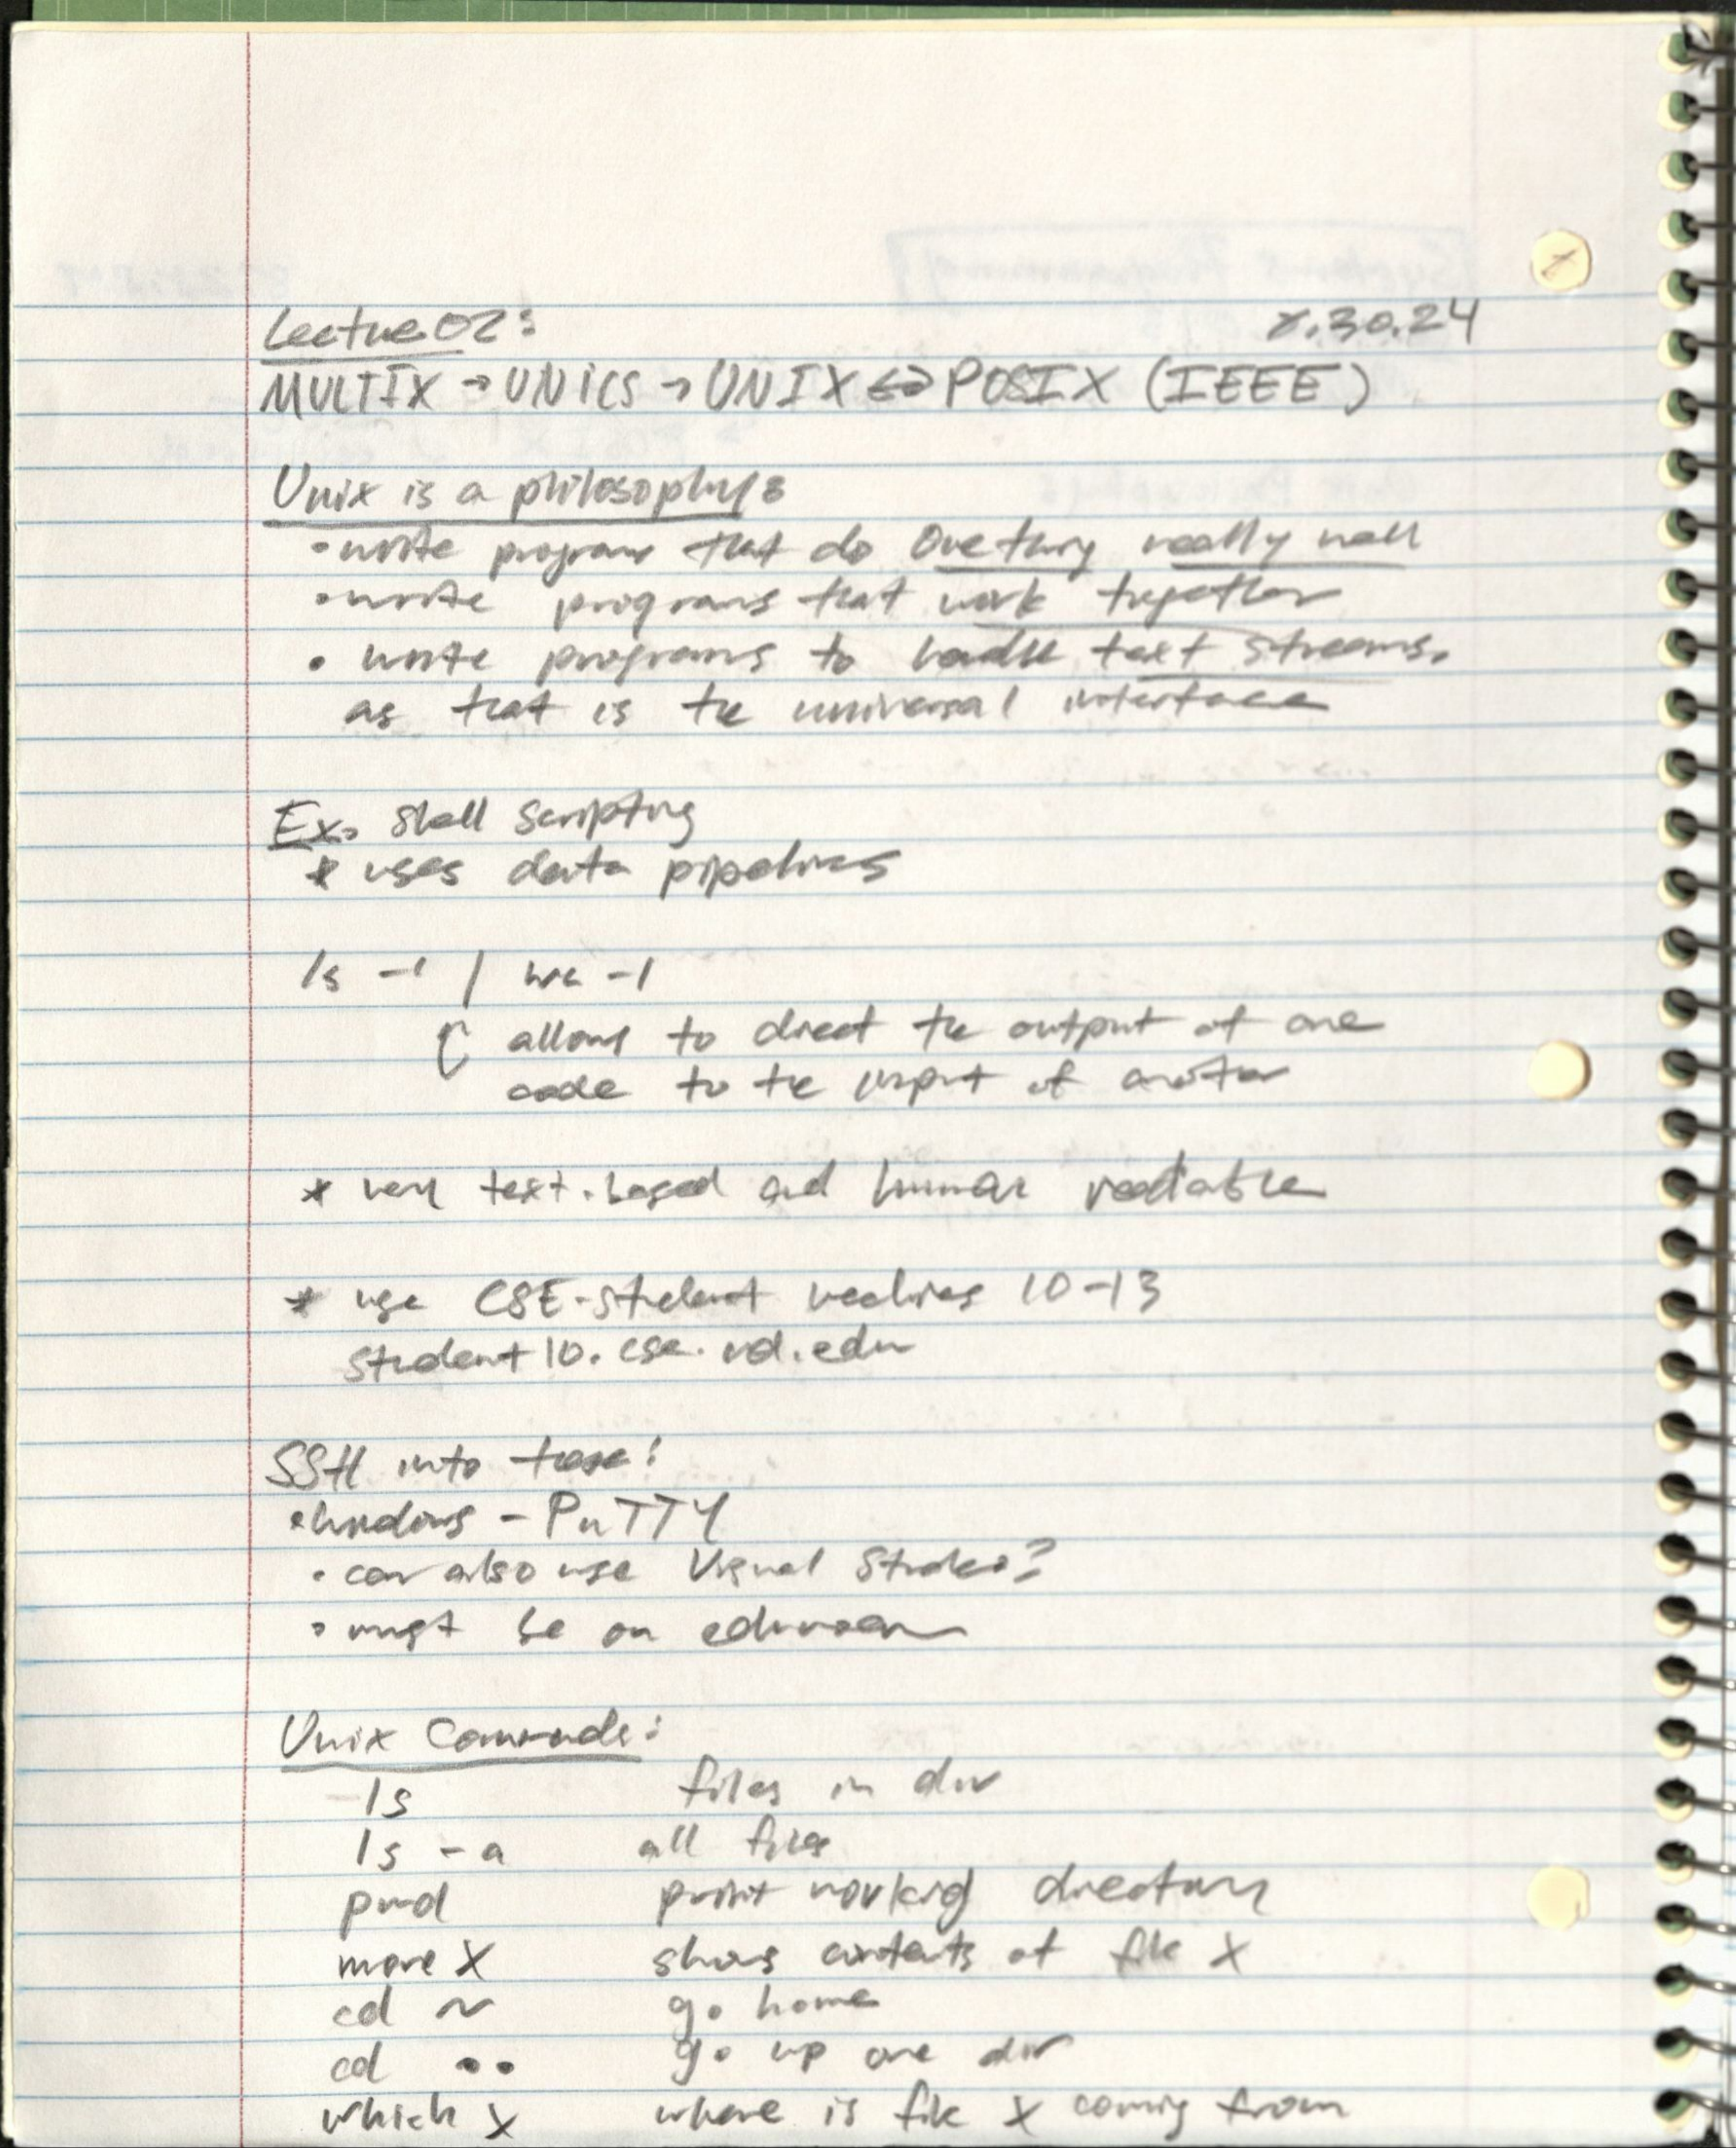 Lecture 02: 8.30.24
MULTIX → UNICS → UNIX ⇔ POSIX (IEEE)
Unix is a philosophy:
• write programs that do one thing really well
• write programs that work together
• write programs to handle text streams,
as that is the universal interface
Ex. Shell Scripting
* uses data pipelines
ls -l | wc -l
allows to direct the output of one
code to the input of another
* very text-based and human readable
* use CSE-student machines 10-13
student10.cse.nd.edu
SSH into these:
• windows - PuTTY
• can also use Visual Studio?
• must be on eduroam
Unix Commands:
ls files in dir
ls -a all files
pwd print working directory
more X shows contents of file X
cd ~ go home
cd .. go up one dir
which X where is file X coming from